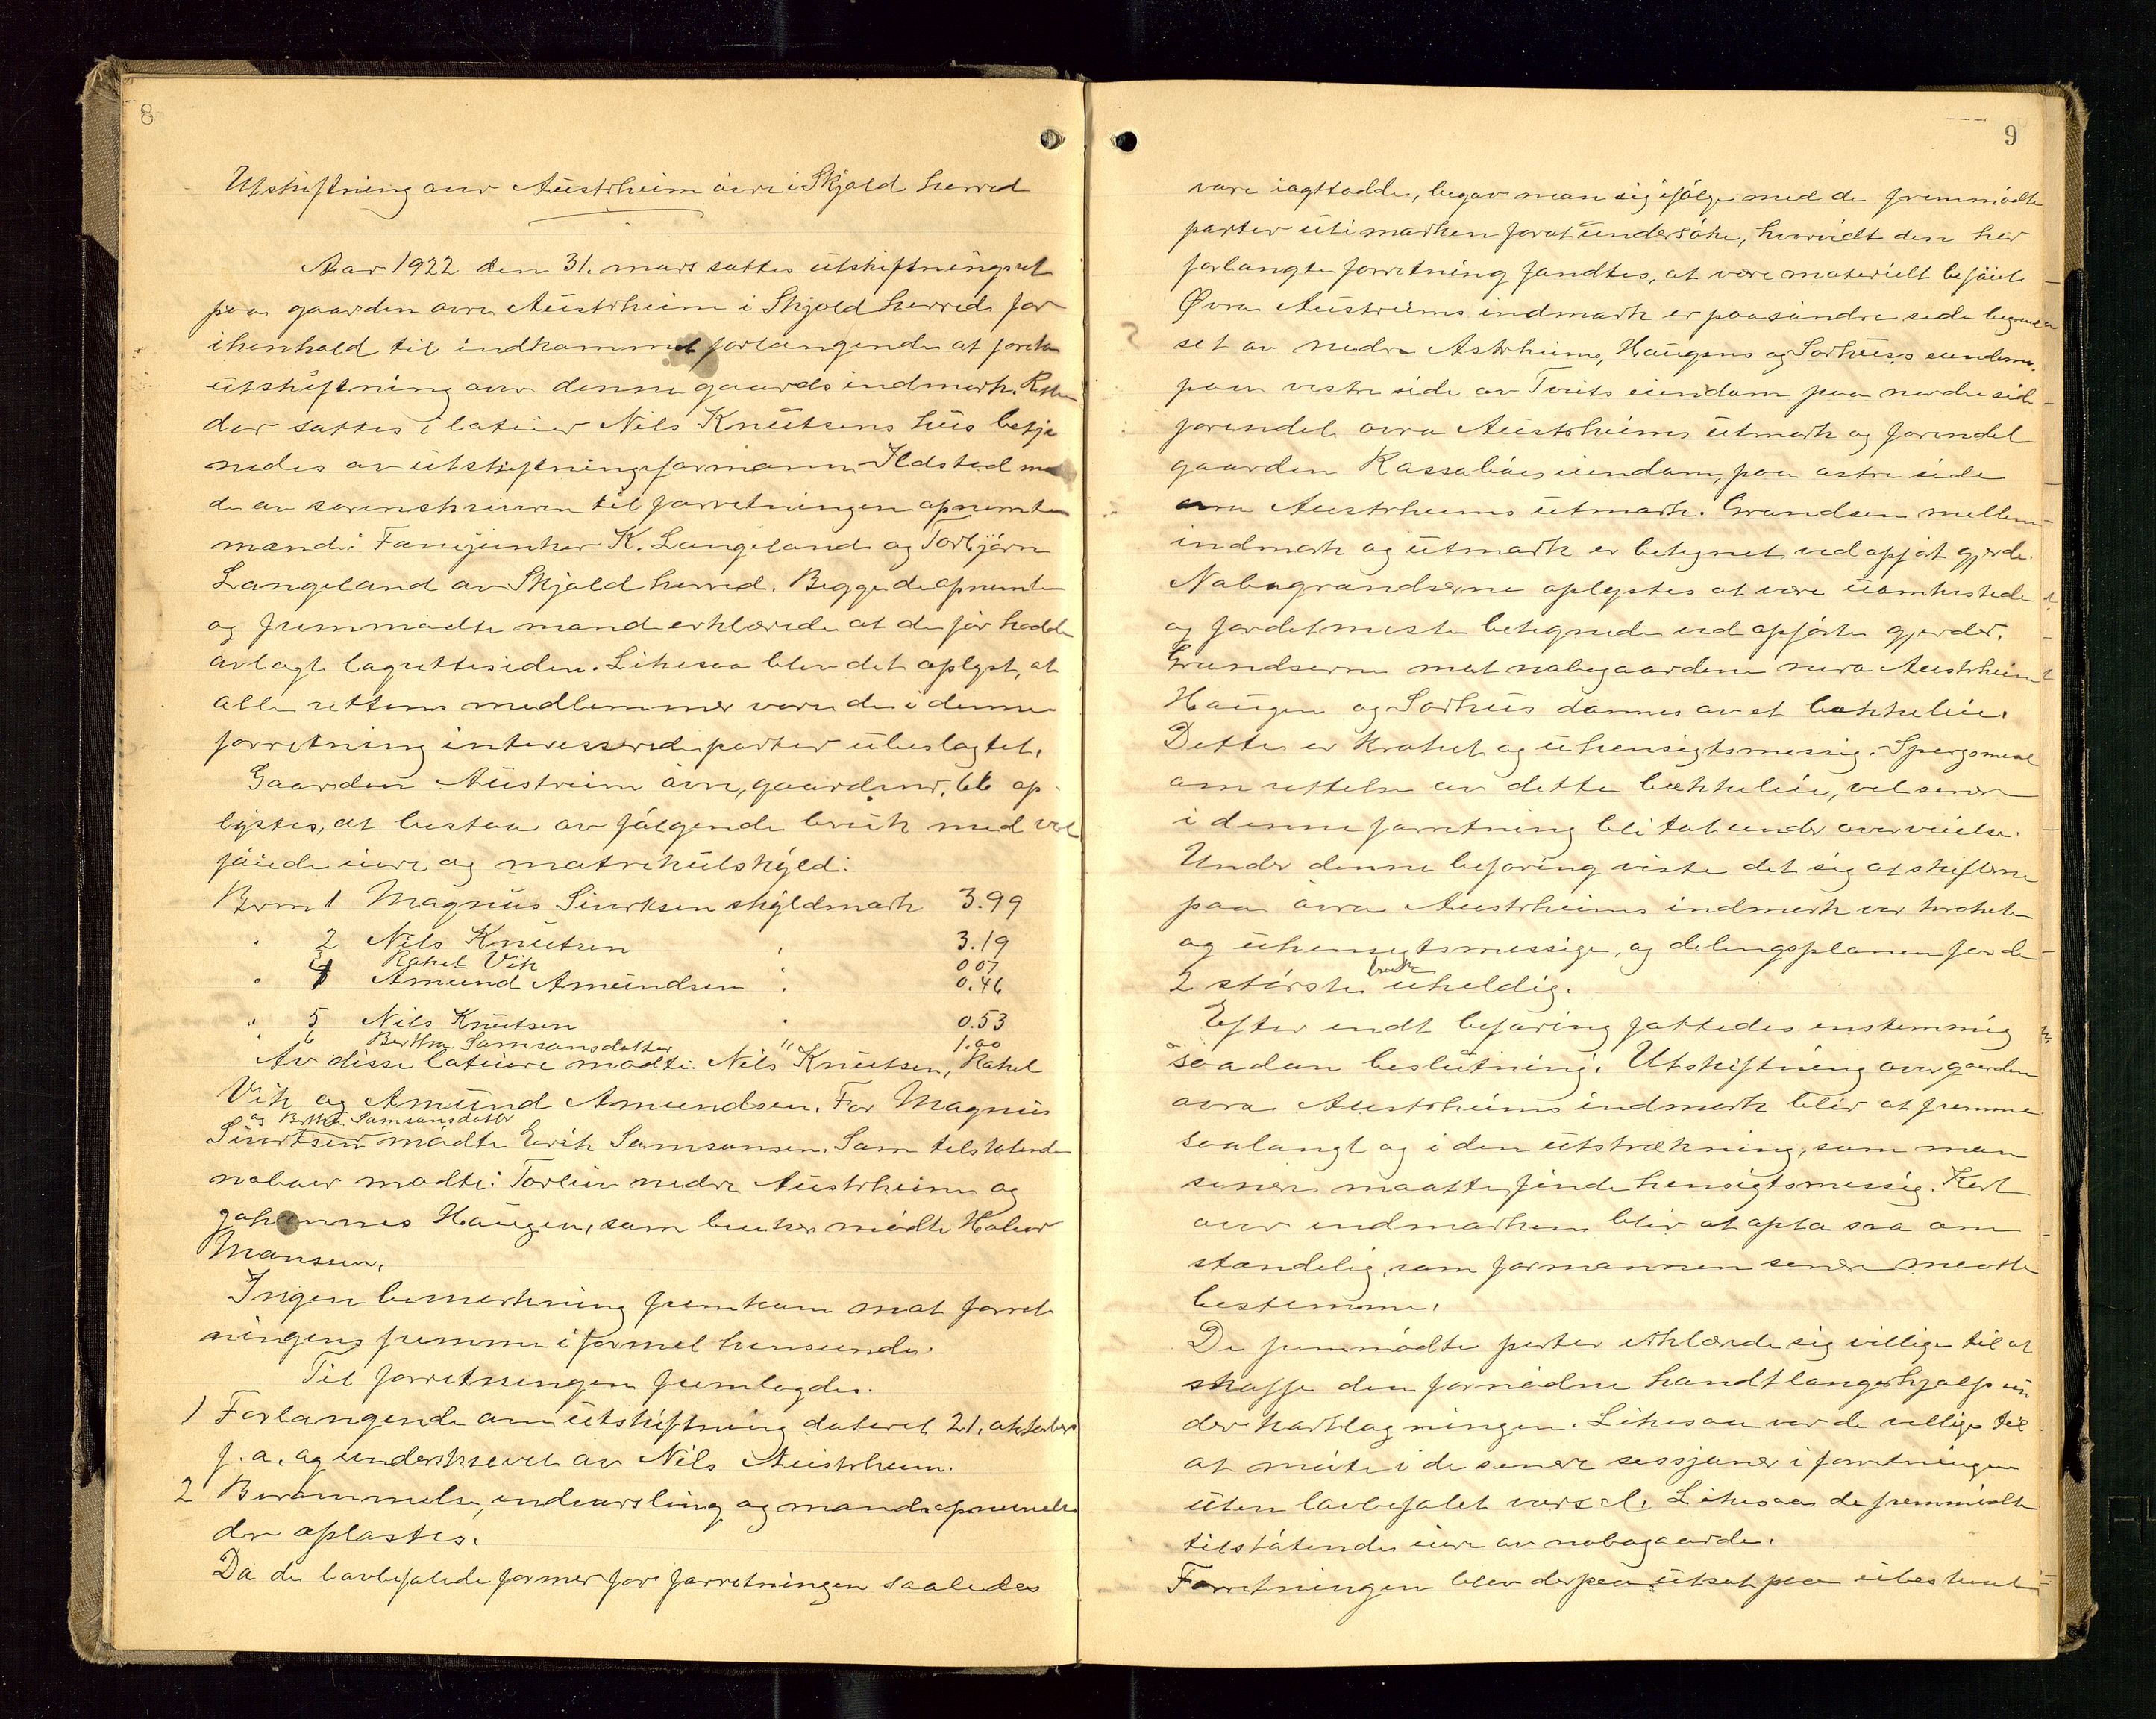 8
Utskiftning over Austrheim øvre i Skjold herred
Aar 1922 den 31. mars sattes utskiftningsret
paa gaarden øvre Austrheim i Skjold herred for
i henhold til indkommet forlangende at foreta
utskiftning over denne gaards indmark. Retten
der sattes i lateier Nils Knutsens hus betje
nedes av utskiftningsformann Ildstad med
de av sorenskriveren til forretningen opnemte
mænd: Fanejunker K. Langeland og Torbjørn
Langeland av Skjold herred. Begge de opnemte
og fremmødte mænd erklærede at de før hadde
avlagt lagretteseden. Likesaa blev det oplyst, at
alle rettens medlemmer var de i denne
forretning interesserede parter ubeslægtet.
Gaarden Austreim øvre, gaardsnr. 66 op
lystes, at bestaa av følgende bruk med ved
føiede eiere og matrikulskyld:
Brnr 1 Magnus Sjurksen skyldmark 3.99
" 2 Nils Knutsen " 3.19
3 Rakel Vik 0 07
" 4 Amund Amundsen " 0.46
" 5 Nils Knutsen " 0.53
" 6 Bertha Samsonsdatter " 1.00
Av disse lateiere mødte: Nils Knutsen, Rakel
Vik og Amund Amundsen. For Magnus
og Bertha Samsonsdatter
Sjurtsen mødte Eirik Samsonsen. Som tilstøtende
naboer mødte: Torleiv nedre Austrheim og
Johannes Haugen, som bruker mødte
Monssen.
Ingen bemerkning fremkom mot forret
ningens fremme i formel henseende.
Til forretningen fremlagdes.
1 Forlangende om utskiftning dateret 21. oktober
f. a. og underskrevet av Nils Austrheim.
2 Berammelse, indvarsling og mandsopnevnelse
der oplæstes.
Da de lovbefalede former for forretningen saaledes
9
vare iagttadde, begav man sig ifølge med de fremmødte
parter ut i marken forat undersøke, hvorvidt den her
forlangte forretning fandtes, at være materielt beføiet.
Øvre Austreims indmark er paa søndre side begrænd
set av nedre Astrheims, Haugens og Sørhus's eiendom.
paa vestre side av Tveits eiendom paa nordre side
forendel øvre Austrheims utmark og forendel
gaarden eiendom, paa østre side
øvre Austrheims utmark. Grændsen mellem
indmark og utmark er betegnet ved opført gjerde.
Nabogrændserne oplystes at være uomtvistede
og for det meste betegnede ved opførte gjerder.
Grændserne mot nabogaardene nedre Austrheim
Haugen og Sørhus dannes av et bekkeleie.
Dette er kroket og uhensigtsmessig. Spørgsmaal
om rettelse av dette bekkeleie, vil senere
i denne forretning bli tat under overveielse.
Under denne befaring viste det sig at skifterne
paa øvre Austrheims indmark var krokete
og uhensigtsmessige, og delingsplanen for de
bruk
2 største uheldig.
Efter endt befaring fattedes enstemmig
saadan beslutning: Utskiftning over gaarden
øvre Austrheims indmark blir at fremme
saalangt og i den utstrækning, som man
senere maatte finde hensigtsmessig. Kart
over indmarken blir at opta saa om
stændelig, som formannen senere maatte
bestemme.
De fremmødte parter erklærede sig villige til at
skaffe den fornødne handtlangerhjælp un
der kartlagningen. Likesaa var de villige til
at møte i de senere sessjoner i forretningen
uten lovbefalet varsel. Likesaa de fremmødte
tilstøtende eiere av nabogaarde.
Forretningen blev derpaa utsat paa ubestemt